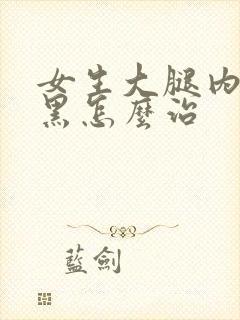 女生大腿内
黑怎麼治
藍劍